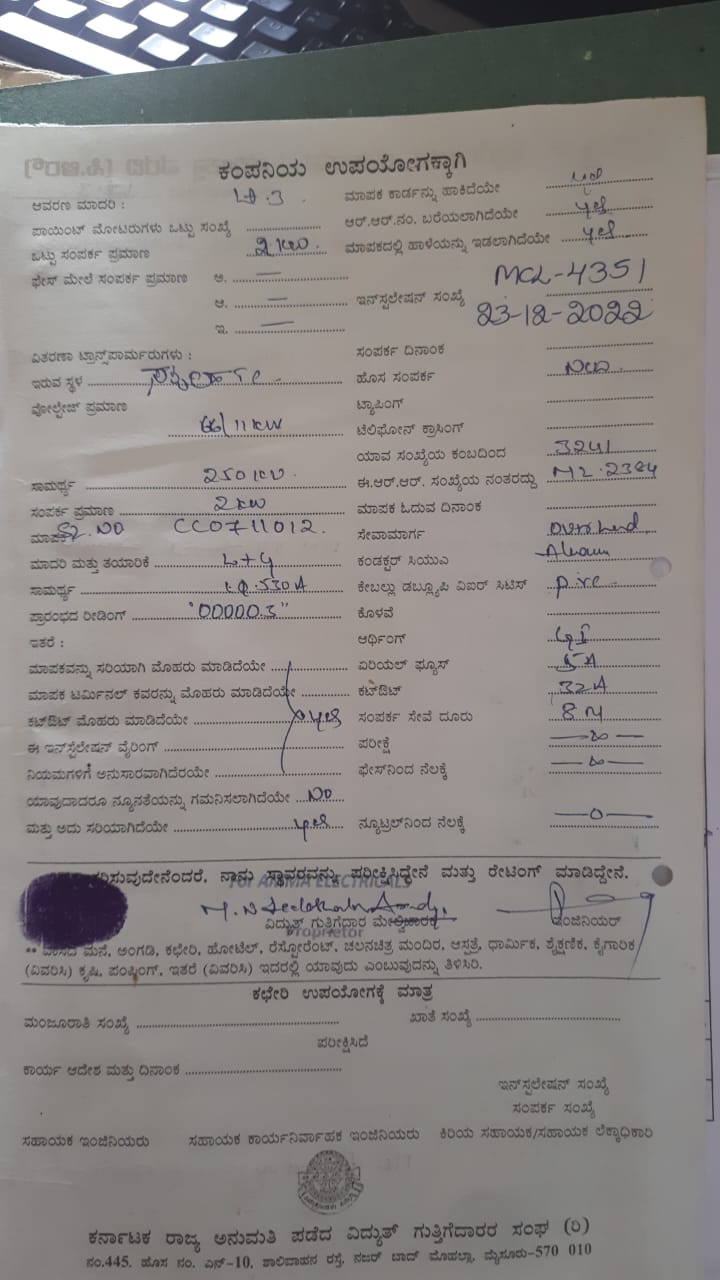 ಕಂಪನಿಯ ಉಪಯೋಗಕ್ಕಾಗಿ
ಆವರಣ ಮಾದರಿ : LT.3 ಮಾಪಕ ಕಾರ್ಡನ್ನು ಹಾಕಿದೆಯೇ yes
ಪಾಯಿಂಟ್ ಮೋಟರುಗಳು ಒಟ್ಟು ಸಂಖ್ಯೆ ಆರ್.ಆರ್.ನಂ. ಬರೆಯಲಾಗಿದೆಯೇ yes
ಒಟ್ಟು ಸಂಪರ್ಕ ಪ್ರಮಾಣ 2 KW. ಮಾಪಕದಲ್ಲಿ ಹಾಳೆಯನ್ನು ಇಡಲಾಗಿದೆಯೇ yes
ಫೇಸ್ ಮೇಲೆ ಸಂಪರ್ಕ ಪ್ರಮಾಣ ಅ. —
ಆ. — ಇನ್‌ಸ್ಟಲೇಷನ್ ಸಂಖ್ಯೆ MCL-4351
ಇ. — 23-12-2022
ವಿತರಣಾ ಟ್ರಾನ್ಸ್‌ಪಾರ್ಮರುಗಳು : ಸಂಪರ್ಕ ದಿನಾಂಕ
ಇರುವ ಸ್ಥಳ ಹೊಸ ಸಂಪರ್ಕ
ವೋಲ್ಟೇಜ್ ಪ್ರಮಾಣ ಟ್ಯಾಪಿಂಗ್
66/11 KW ಟೆಲಿಫೋನ್ ಕ್ರಾಸಿಂಗ್
ಯಾವ ಸಂಖ್ಯೆಯ ಕಂಬದಿಂದ 3241
ಸಾಮರ್ಥ್ಯ 250 KV. ಈ.ಆರ್.ಆರ್. ಸಂಖ್ಯೆಯ ನಂತರದ್ದು ML.2384
ಸಂಪರ್ಕ ಪ್ರಮಾಣ 2 KW ಮಾಪಕ ಓದುವ ದಿನಾಂಕ
ಮಾಪಕ SL.NO CC0711012. ಸೇವಾಮಾರ್ಗ Overhead
ಮಾದರಿ ಮತ್ತು ತಯಾರಿಕೆ L+G ಕಂಡಕ್ಟರ್ ಸಿಯುಎ
ಸಾಮರ್ಥ್ಯ ಕೇಬಲ್ಲು ಡಬ್ಲ್ಯೂಪಿ ವಿಐರ್ ಸಿಟಿಸ್
ಪ್ರಾರಂಭದ ರೀಡಿಂಗ್ "00000.3" ಕೊಳವೆ
ಇತರೆ : ಆರ್ಥಿಂಗ್ GI
ಮಾಪಕವನ್ನು ಸರಿಯಾಗಿ ಮೊಹರು ಮಾಡಿದೆಯೇ ಏರಿಯಲ್ ಫ್ಯೂಸ್ 5A
ಮಾಪಕ ಟರ್ಮಿನಲ್ ಕವರನ್ನು ಮೊಹರು ಮಾಡಿದೆಯೇ ಕಟ್‌ಔಟ್ 32A
ಕಟ್‌ಔಟ್ ಮೊಹರು ಮಾಡಿದೆಯೇ yes ಸಂಪರ್ಕ ಸೇವೆ ದೂರು 8 M
ಈ ಇನ್‌ಸ್ಟಲೇಷನ್ ವೈರಿಂಗ್ ಪರೀಕ್ಷೆ
ನಿಯಮಗಳಿಗೆ ಅನುಸಾರವಾಗಿದೆರಯೇ ಫೇಸ್‌ನಿಂದ ನೆಲಕ್ಕೆ
ಯಾವುದಾದರೂ ನ್ಯೂನತೆಯನ್ನು ಗಮನಿಸಲಾಗಿದೆಯೇ NO
ಮತ್ತು ಅದು ಸರಿಯಾಗಿದೆಯೇ yes ನ್ಯೂಟ್ರಲ್‌ನಿಂದ ನೆಲಕ್ಕೆ —0—
ನಾನು ಸ್ಥಾವರವನ್ನು ಪರೀಕ್ಷಿಸಿದ್ದೇನೆ ಮತ್ತು ರೇಟಿಂಗ್ ಮಾಡಿದ್ದೇನೆ.
ELECTRICALS
ವಿದ್ಯುತ್ ಗುತ್ತಿಗೆದಾರ ಮೇಲ್ವಿಚಾರಕ ಇಂಜಿನಿಯರ್
Proprietor
** ವಾಸದ ಮನೆ, ಅಂಗಡಿ, ಕಛೇರಿ, ಹೋಟೆಲ್, ರೆಸ್ಟೋರೆಂಟ್, ಚಲನಚಿತ್ರ ಮಂದಿರ, ಆಸ್ಪತ್ರೆ, ಧಾರ್ಮಿಕ, ಶೈಕ್ಷಣಿಕ, ಕೈಗಾರಿಕ
(ವಿವರಿಸಿ) ಕೃಷಿ, ಪಂಪ್ಸಿಂಗ್, ಇತರೆ (ವಿವರಿಸಿ) ಇದರಲ್ಲಿ ಯಾವುದು ಎಂಬುವುದನ್ನು ತಿಳಿಸಿರಿ.
ಕಛೇರಿ ಉಪಯೋಗಕ್ಕೆ ಮಾತ್ರ
ಮಂಜೂರಾತಿ ಸಂಖ್ಯೆ ಖಾತೆ ಸಂಖ್ಯೆ
ಪರೀಕ್ಷಿಸಿದೆ
ಕಾರ್ಯ ಆದೇಶ ಮತ್ತು ದಿನಾಂಕ
ಇನ್‌ಸ್ಟಲೇಷನ್ ಸಂಖ್ಯೆ
ಸಂಪರ್ಕ ಸಂಖ್ಯೆ
ಸಹಾಯಕ ಇಂಜಿನಿಯರು ಸಹಾಯಕ ಕಾರ್ಯನಿರ್ವಾಹಕ ಇಂಜಿನಿಯರು ಕಿರಿಯ ಸಹಾಯಕ/ಸಹಾಯಕ ಲೆಕ್ಕಾಧಿಕಾರಿ
ಕರ್ನಾಟಕ ರಾಜ್ಯ ಅನುಮತಿ ಪಡೆದ ವಿದ್ಯುತ್ ಗುತ್ತಿಗೆದಾರರ ಸಂಘ (ರಿ)
ನಂ.445, ಹೊಸ ನಂ. ಎನ್-10, ಶಾಲಿವಾಹನ ರಸ್ತೆ, ನಜರ್ ಬಾದ್ ಮೊಹಲ್ಲಾ, ಮೈಸೂರು-570 010